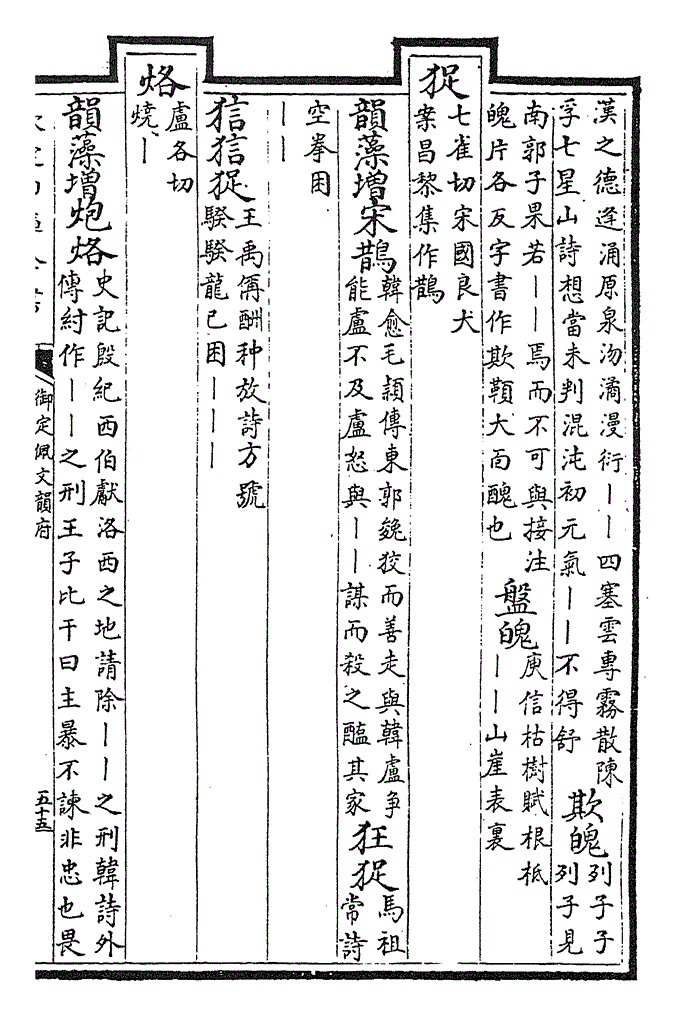 漢之德逢涌原泉沕潏漫衍丨丨四塞雲専霧散陳
孚七星山詩想當未判混沌初元氣丨丨不得舒
欺䰟
列子子
列子見
南郭子果若丨丨焉而不可與接注
䰟片各反字書作欺䫏大面醜也
盤䰟
庾信枯樹賦根柢
丨丨山崖表裏
㹱
七雀切宋國良犬
案昌黎集作鵲
韻藻增
宋鵲
韓愈毛頴傳東郭㕙狡而善走與韓盧爭
能盧不及盧怒與丨丨謀而殺之醢其家
狂㹱
馬祖
常詩
空拳困
丨丨
狺狺㹱
王禹偁酬种放詩方號
騤騤龍已困丨丨丨
烙
盧各切
燒丨
韻藻增
炮烙
史記殷紀西伯獻洛西之地請除丨丨之刑韓詩外
傳紂作丨丨之刑王子比干曰主暴不諫非忠也畏
御定佩文韻府
五十五